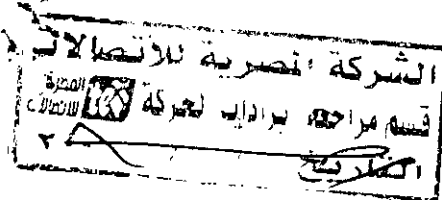 الشركة المصرية للاتصالات
قسم مراجعة لحركة
المصرية للاتصالات
التاريخ ٢